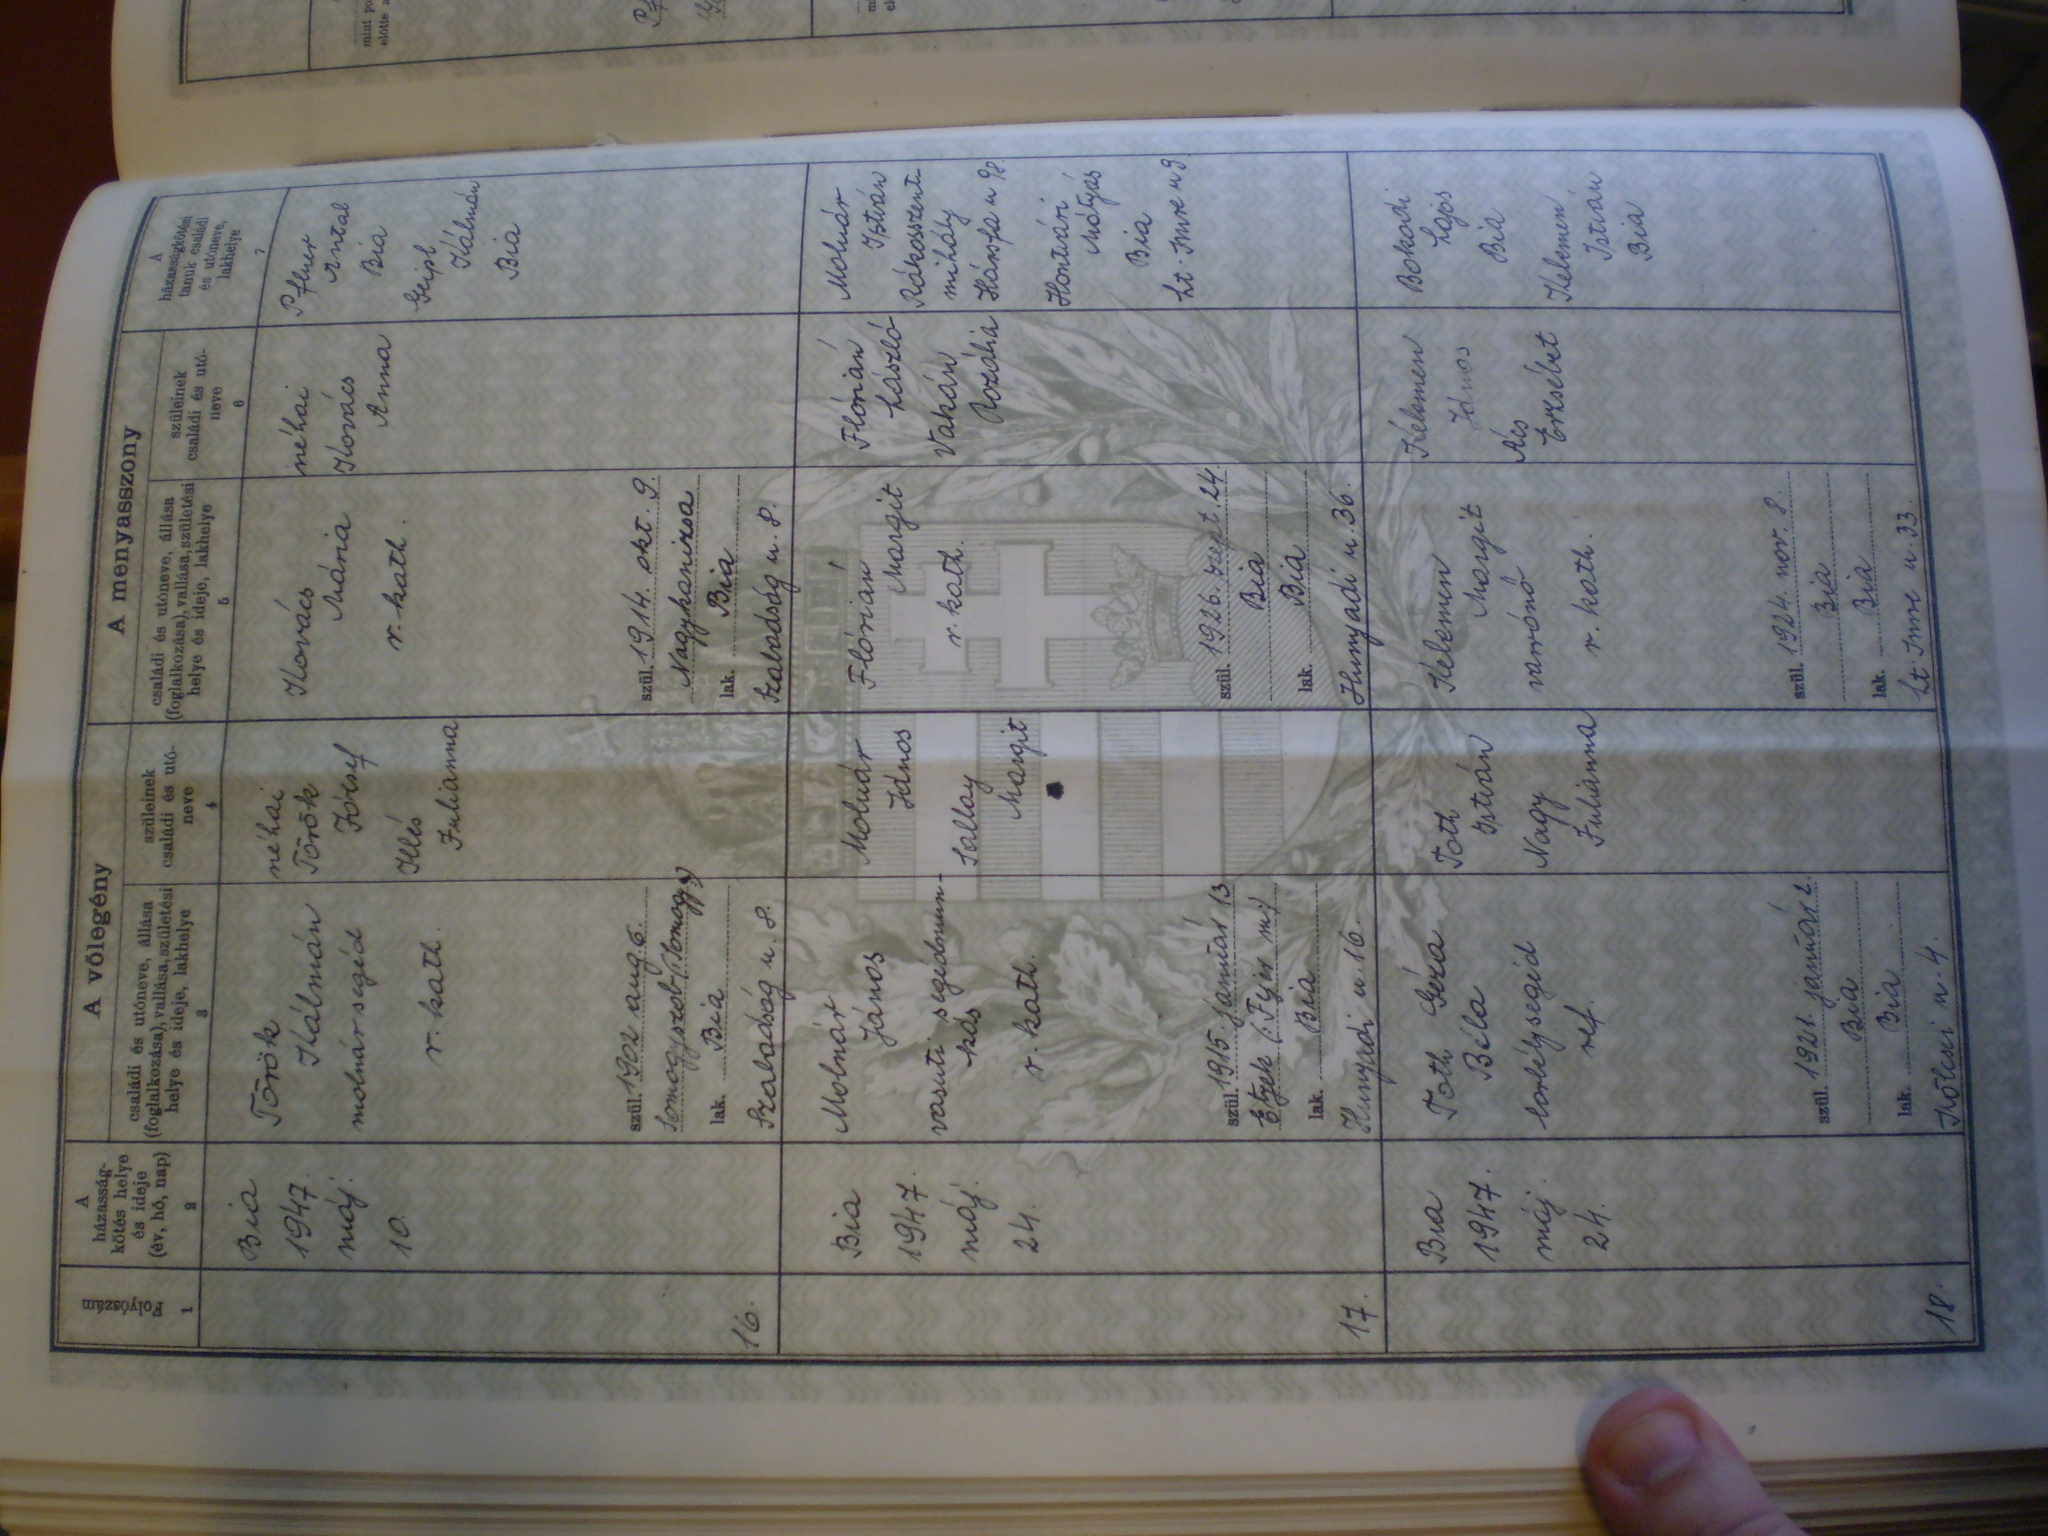 A vőlegény
A menyasszony
Folyószám
1
A
házasság-
kötés helye
és ideje
(év, hó, nap)
2
családi és utóneve, állása
(foglalkozása), vallása, születési
helye és ideje, lakhelye
3
szüleinek
családi és utó-
neve
4
családi és utóneve, állása
(foglalkozása), vallása, születési
helye és ideje, lakhelye
5
szüleinek
családi és utó-
neve
6
A
házasságkötési
tanuk családi
és utóneve,
lakhelye
7
16.
Bia
1947.
máj.
10.
Török
Kálmán
molnársegéd
r. kath.
szül. 1902 aug. 6.
Somogyszob (Somogy)
lak. Bia
Szabadság u. 8.
néhai
Török
József
Illés
Julianna
Kovács
Mária
r. kath.
szül. 1914. okt. 9.
Nagykanizsa
lak. Bia
Szabadság u. 8.
néhai
Kovács
Anna
Antal
Bia
Kálmán
Bia
17.
Bia
1947
máj.
24.
Molnár
János
vasuti segédmun-
kás
r. kath.
szül. 1915. január 13
Etyek (Fejér m)
lak. Bia
Hunyadi u. 16.
Molnár
János
Sallay
Margit
Flórián
Margit
r. kath.
szül. 1926. szept. 24.
Bia
lak. Bia
Hunyadi u. 36.
Flórián
László
Vakán
Rozália
Molnár
István
Rákosszentmihály
Hontvári
Mátyás
Bia
Szt. Imre u 9
18.
Bia
1947.
máj.
24.
Toth Géza
Béla
borbélysegéd
ref.
szül. 1921. január 2.
Bia
lak. Bia
Kölcsei u. 4.
Toth
István
Nagy
Julianna
Kelemen
Margit
varrónő
r. kath.
szül. 1924. nov. 8.
Bia
lak. Bia
Szt. Imre u. 33.
Kelemen
János
Ács
Erzsébet
Bokodi
Lajos
Bia
Kelemen
István
Bia